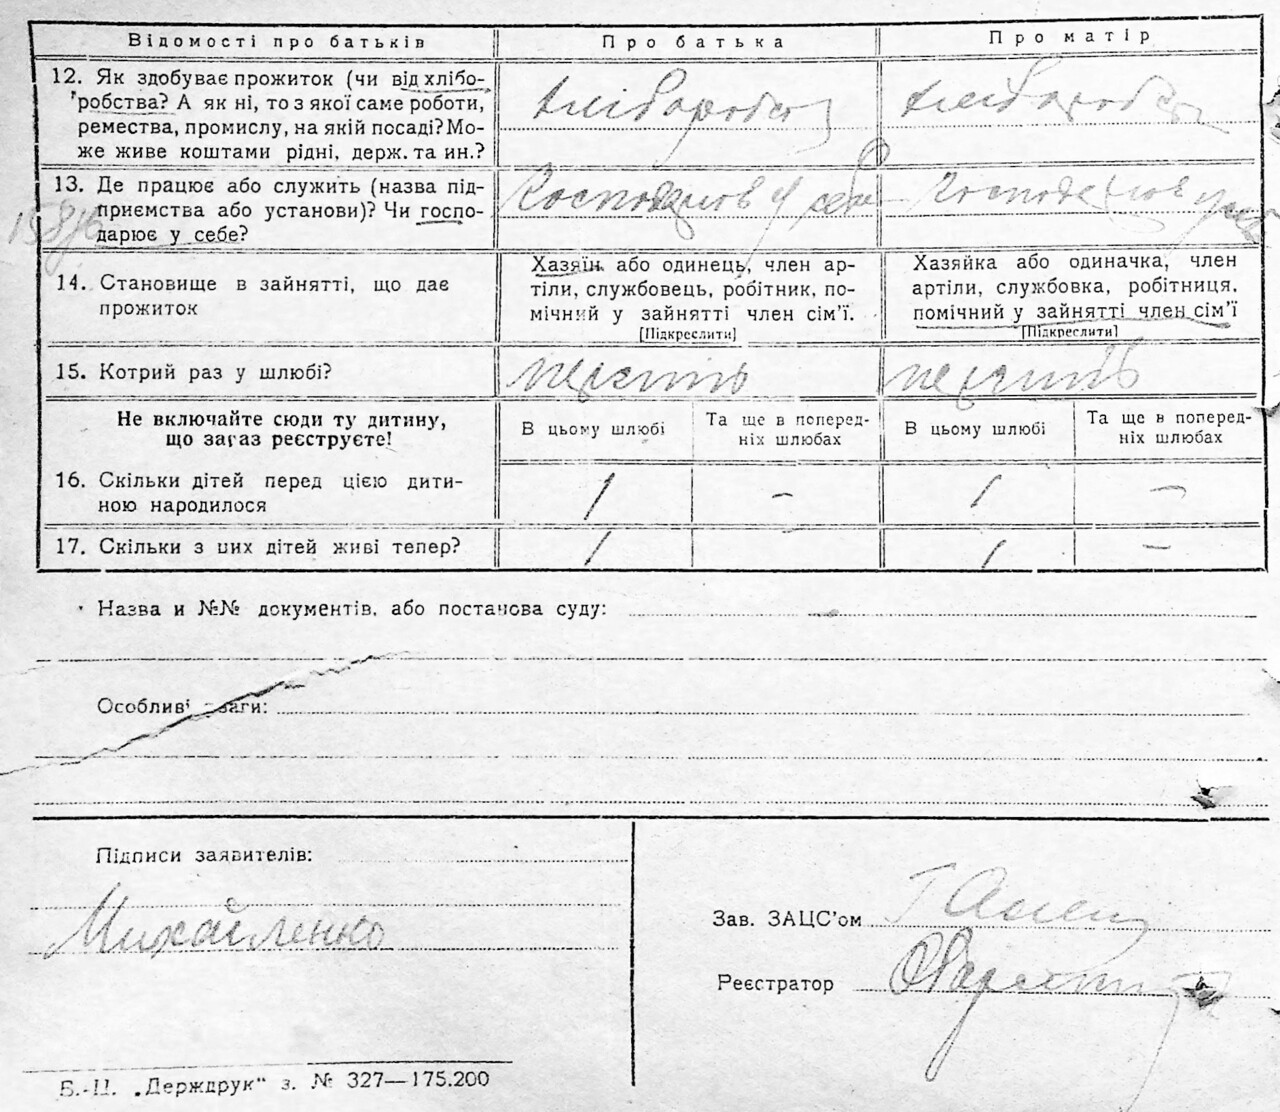 Відомості про батьків Про батька Про матір
12. Як здобуває прожиток (чи від хлібо-
робства? А як ні, то з якої саме роботи,
ремества, промислу, на якій посаді? Мо-
же живе коштами рідні, держ. та ин.?
хлібороб хлібороб
13. Де працює або служить (назва під-
приємства або установи)? Чи госпо-
дарює у себе?
у себе
14. Становище в зайнятті, що дає
прожиток
Хазяїн або одинець, член ар-
тіли, службовець, робітник, по-
мічний у зайнятті член сім'ї.
[Підкреслити]
Хазяйка або одиначка, член
артіли, службовка, робітниця,
помічний у зайнятті член сім'ї
[Підкреслити]
15. Котрий раз у шлюбі?
Не включайте сюди ту дитину,
що зараз реєструєте!
В цьому шлюбі Та ще в поперед-
ніх шлюбах В цьому шлюбі Та ще в поперед-
ніх шлюбах
16. Скільки дітей перед цією дити-
ною народилося
1 – 1 –
17. Скільки з цих дітей живі тепер? 1 1 –
Назва и №№ документів, або постанова суду: –
Особливі уваги:
Підписи заявителів:
Михайленко
Зав. ЗАЦС'ом
Реєстратор
Б.-Ц. „Держдрук" з. № 327—175.200